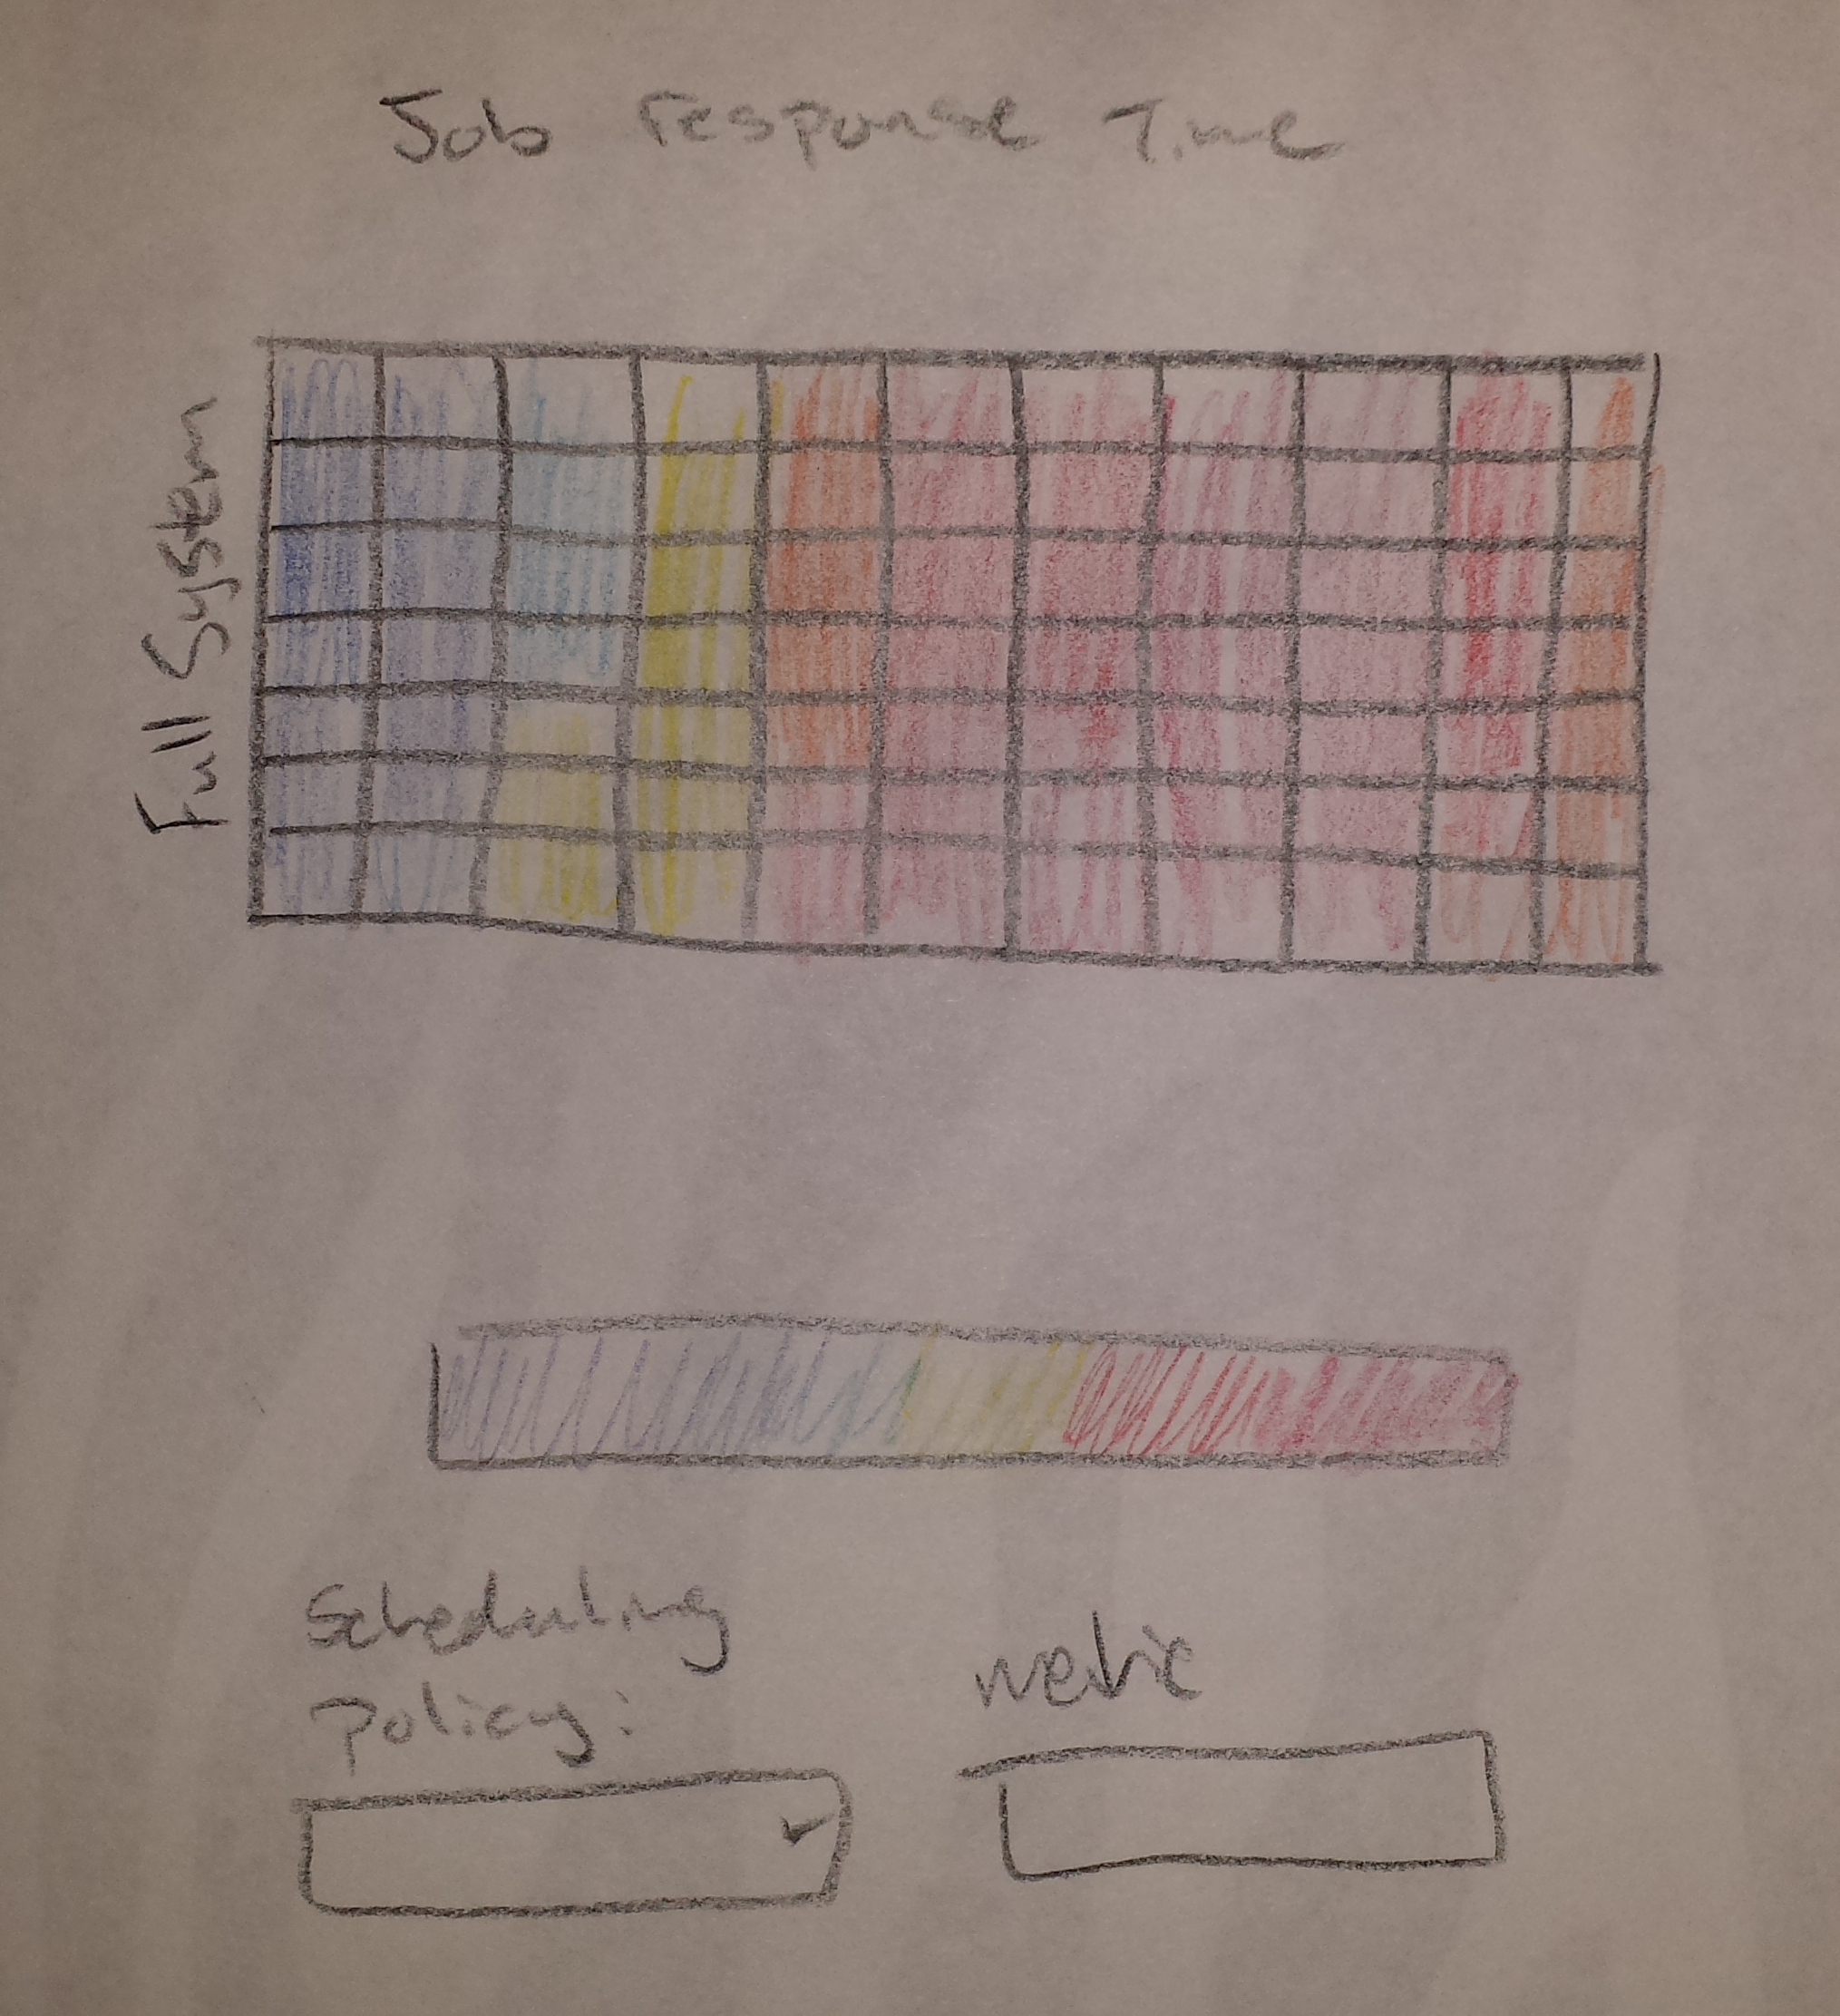 Job response Time
Full System
Scheduling
Policy:
metric